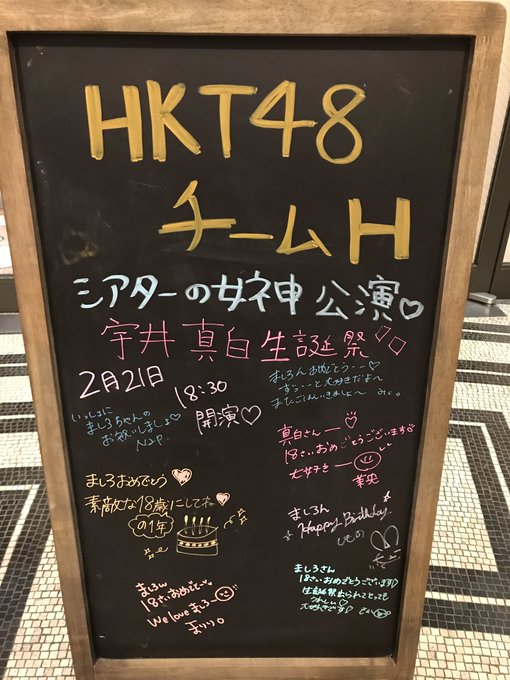 HKT48
チームH
シアターの女神 公演♡
宇井真白生誕祭
2月21日
18:30
開演♡
ましろんおめでとう〜♡
ずぅーーと大好きだよ〜
またごはんいきましょ〜
いっしょに
ましろちゃんの
お祝いしましょ♡
真白さん
18さいおめでとうございます
大好きー
ましろおめでとう
素敵な18歳にしてね
の1年
ましろん
Happy Birthday
ましろん
18さいおめでとう
We love ましろー
ましろさん
18さいおめでとうございます
生誕祭出られてとっても
うれしい♡
大好きです